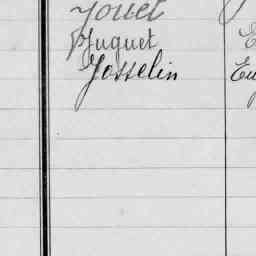 Jouet
Juguet
E
Josselin
Eu